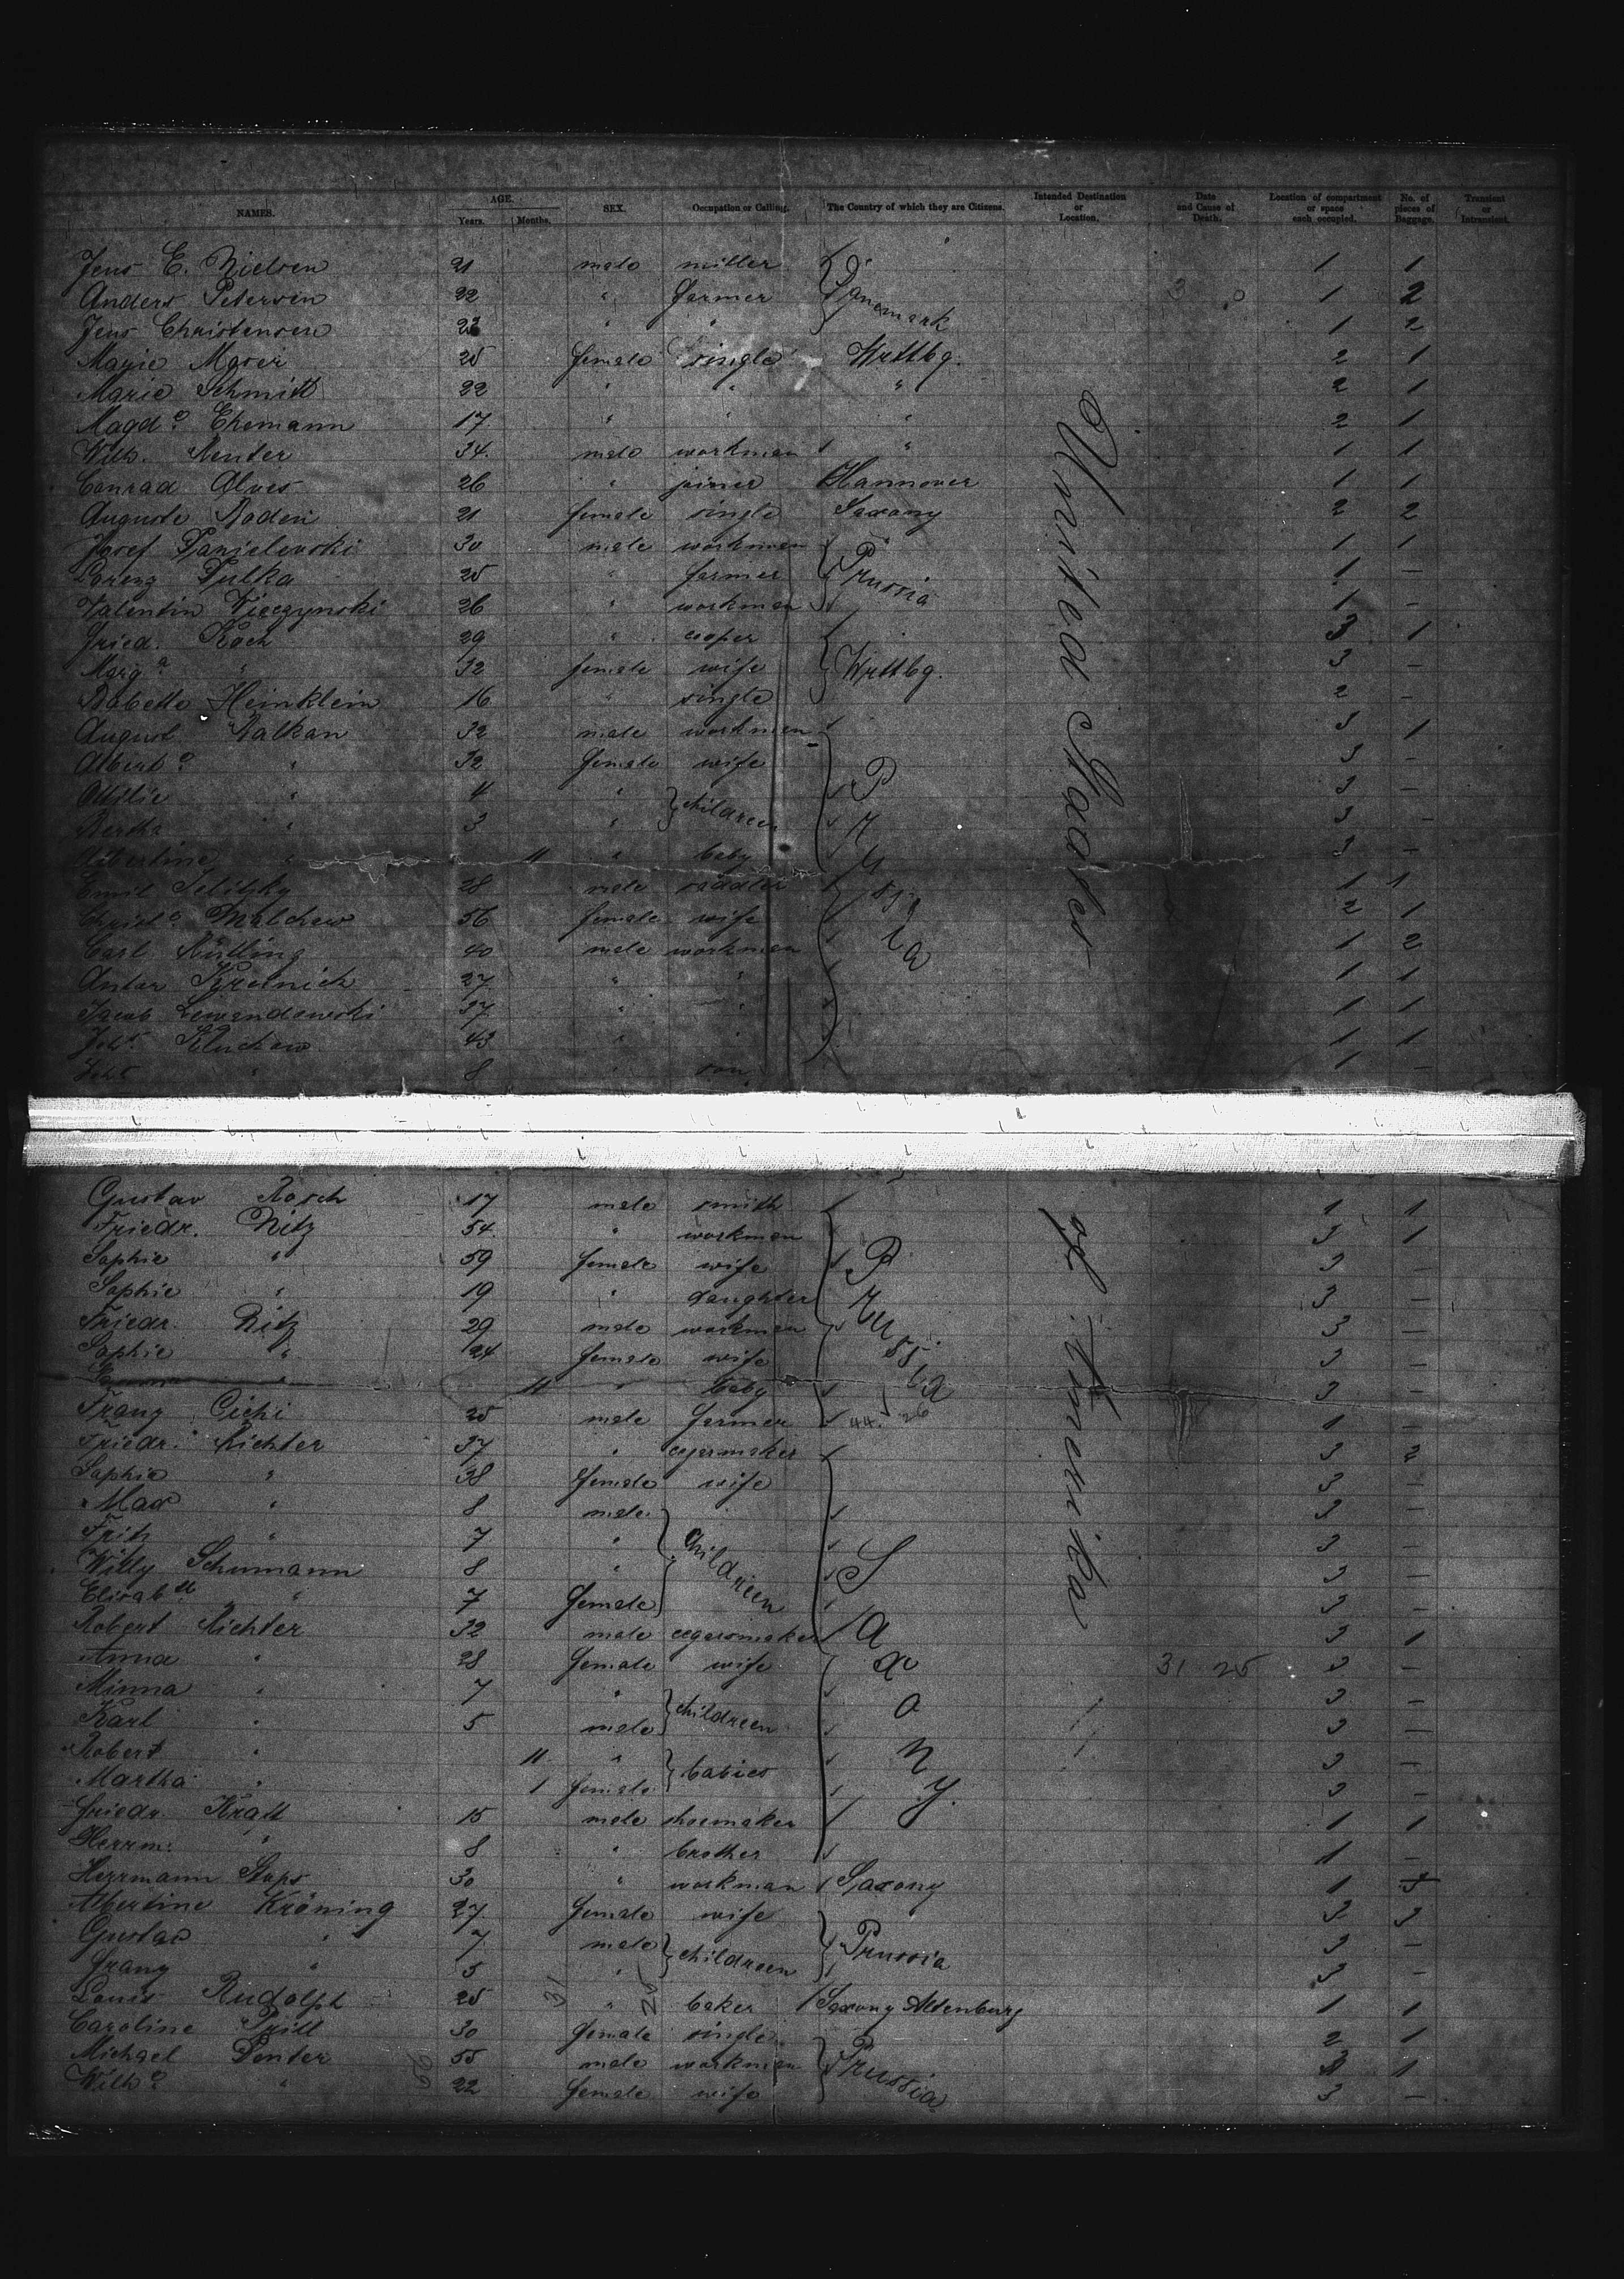 NAMES. AGE. Years. Months. SEX. Occupation or Calling. The Country of which they are Citizens. Intended Destination or Location. Date and Cause of Death. Location of compartment or space each occupied. No. of pieces of Baggage. Transient or Intransient.
Jens E. Nielsen 21 male miller 1 1
Anders Petersen 22 " farmer Danemark 1 2
Jens Christensen " " 1 2
Marie Maser 25 female single Wrttbg. 2 1
Marie Schmitt 22 " " " 2 1
Magd.a Ehemann 17 " " " 2 1
Wilh. Reuter 34 male workman " 1 1
Conrad Alves 26 " joiner Hannover 1 1
Auguste Baden 21 female single Saxony 2 2
Josef Danielewski 30 male workman 1 1
Lorenz Pulka 25 " farmer Prussia 1 —
Valentin Vieczynski 26 " workman 1 —
Fried. Koch 29 " cooper 3 1
Marg.a " 32 female wife Wrttbg. 3 —
Babette Heinklein 16 " single 2 —
August Kalkan 32 male workman 3 1
Albert.e " 32 female wife 3 —
Ottilie " 4 " children 3 —
Bertha " 3 " 3 —
Albertine " 11 " baby 3 —
Emil 28 male saddler 1 1
Christ.e Malchow 56 female wife 2 1
Carl Rütling 40 male workman 1 2
Anton 27 " " 1 1
Jacob Lewandowski 37 " " 1 1
Joh. Kluckow 43 " " 1 1
Joh. " 8 " son 1 —
Prussia
United States
of Amerika
Gustav Rosch 17 male smith 1 1
Friedr. Nitz 54 " workman 3 1
Sophie " 59 female wife 3 —
Sophie " 19 " daughter 3 —
Friedr. Nitz 29 male workman 3 —
Sophie " 24 female wife 3 —
" 11 " baby 3 —
Prussia
Franz Cichi 25 male farmer 44. 26 1 —
Friedr. Richter 37 " cegarmaker 3 2
Sophie " 38 female wife 3 —
Max " 8 male 3 —
Fritz " 7 " children 3 —
Willy Schumann 8 " 3 —
Elisabth " 7 female 3 —
Robert Richter 32 male cegarsmaker 3 1
Anna " 28 female wife 31 25 3 —
Minna " 7 " children 3 —
Karl " 5 male 3 —
Robert " 11 " babies 3 —
Martha " 1 female 3 —
Saxony.
Friedr. Kraft 15 male shoemaker 1 1
Herrm. " 8 " brother 1 —
Herrmann Staps 30 " workman Saxony 1
Albertine Kröning 27 female wife 3 3
Gustav " 7 male children Prussia 3 —
Franz " 5 " 3 —
Louis Rudolph 25 " baker Saxony Altenburg 1 1
31 25
Caroline Prill 30 female single 2 1
Michael Penter 55 male workman Prussia 3 1
Wilh.e " 22 female wife 3 —